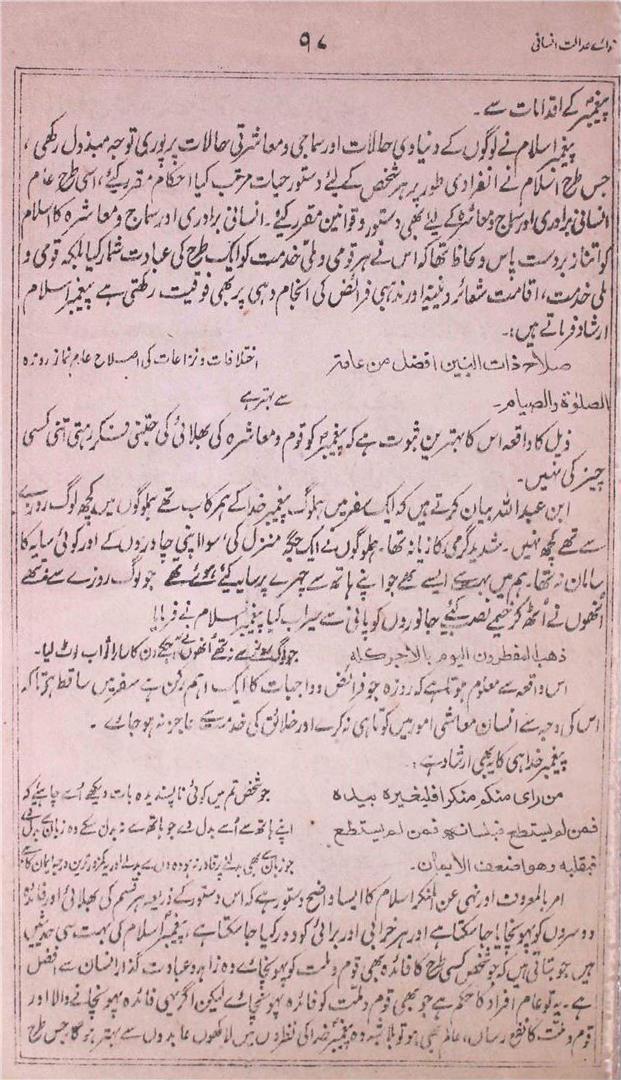 ندائے عدالت انسانی
۹۷
پیغمبرؐ کے اقدامات سے۔
پیغمبر اسلام نے لوگوں کے دنیاوی حالات اور سماجی و معاشرتی حالات پر پوری توجہ مبذول رکھی،
جس طرح اسلام نے انفرادی طور پر ہر شخص کے لئے دستور حیات مرتب کیا احکام مقرر کیئے، اسی طرح عام
انسانی برادری اور سماج و معاشرہ کے لئے بھی دستور و قوانین مقرر کیئے۔ انسانی برادری اور سماج و معاشرہ کا اسلام
کو اتنا زبردست پاس و لحاظ تھا کہ اس نے ہر قومی و ملی خدمت کو ایک طرح کی عبادت شمار کیا بلکہ قومی و
ملی خدمت، اقامت شعائر دینیہ اور مذہبی فرائض کی انجام دہی پر بھی فوقیت رکھتی ہے پیغمبر اسلام
ارشاد فرماتے ہیں:۔
صلاح ذات البین افضل من عامۃ اختلافات و نزاعات کی اصلاح عام نماز روزہ
الصلوٰۃ والصیام۔ سے بہتر ہے
ذیل کا واقعہ اس کا بہترین ثبوت ہے کہ پیغمبرؐ کو قوم و معاشرہ کی بھلائی کی جتنی فکر رہتی اتنی کسی
چیز کی نہیں۔
ابن عبداللہ بیان کرتے ہیں کہ ایک سفر میں ہملوگ پیغمبر خدا کے ہمرکاب تھے ہملوگوں میں کچھ لوگ روزے
سے تھے کچھ نہیں۔ شدید گرمی کا زمانہ تھا۔ ہملوگوں نے ایک جگہ منزل کی، سوا اپنی چادروں کے اور کوئی سایہ کا
سامان نہ تھا۔ ہم میں بہت سے ایسے بھی تھے جو اپنے ہاتھ سے چہرے پر سایہ کیئے ہوئے تھے جو لوگ روزے سے نہ تھے
انھوں نے اُٹھ کر خیمے نصب کئیے جانوروں کو پانی سے سیراب کیا پیغمبر اسلام نے فرمایا
ذھب المفطرون الیوم بالاجر کلہ جو لوگ روزے سے نہ تھے انھوں نے آج کے دن کا سارا ثواب لوٹ لیا۔
اس واقعہ سے معلوم ہوتا ہے کہ روزہ جو فرائض و واجبات کا ایک اہم رکن ہے سفر میں ساقط ہو گیا تاکہ
اس کی وجہ سے انسان معاشی امور میں کوتاہی نہ کرے اور خلائق کی خدمت سے عاجز نہ ہو جائے۔
پیغمبر خدا ہی کا یہ بھی ارشاد ہے:۔
من رای منکم منکرا فلیغیرہ بیدہ جو شخص تم میں کوئی ناپسندیدہ بات دیکھے اسے چاہیئے کہ
فمن لم یستطع فبلسانہ فمن لم یستطع اپنے ہاتھ سے اُسے بدل دے جو ہاتھ سے نہ بدل سکے وہ زبان سے بدل دے
فبقلبہ وھو اضعف الایمان۔ جو زبان سے بھی بدلنے پر قادر نہ ہو وہ دل سے بدلے اور یہ کمزور ترین درجہ ایمان کا ہے
امر بالمعروف اور نہی عن المنکر اسلام کا ایسا واضح دستور ہے کہ اس دستور کے ذریعہ ہر قسم کی بھلائی اور فائدہ
دوسروں کو پہونچایا جا سکتا ہے اور ہر خرابی اور برائی کو دور کیا جا سکتا ہے، پیغمبر اسلام کی بہت سی حدیثیں
ہیں جو بتاتی ہیں کہ جو شخص کسی طرح کا فائدہ بھی قوم و ملت کو پہونچائے وہ زاہد و عبادت گذار انسان سے افضل
ہے۔ یہ تو عام افراد کا حکم ہے جو بھی قوم و ملت کو فائدہ پہونچائے لیکن اگر یہی فائدہ پہونچانے والا اور
قوم و ملت کا نفع رساں، عالم بھی ہو تو بلا شبہ وہ پیغمبر خدا کی نظروں میں لاکھوں عابدوں سے بہتر ہوگا جس طرح